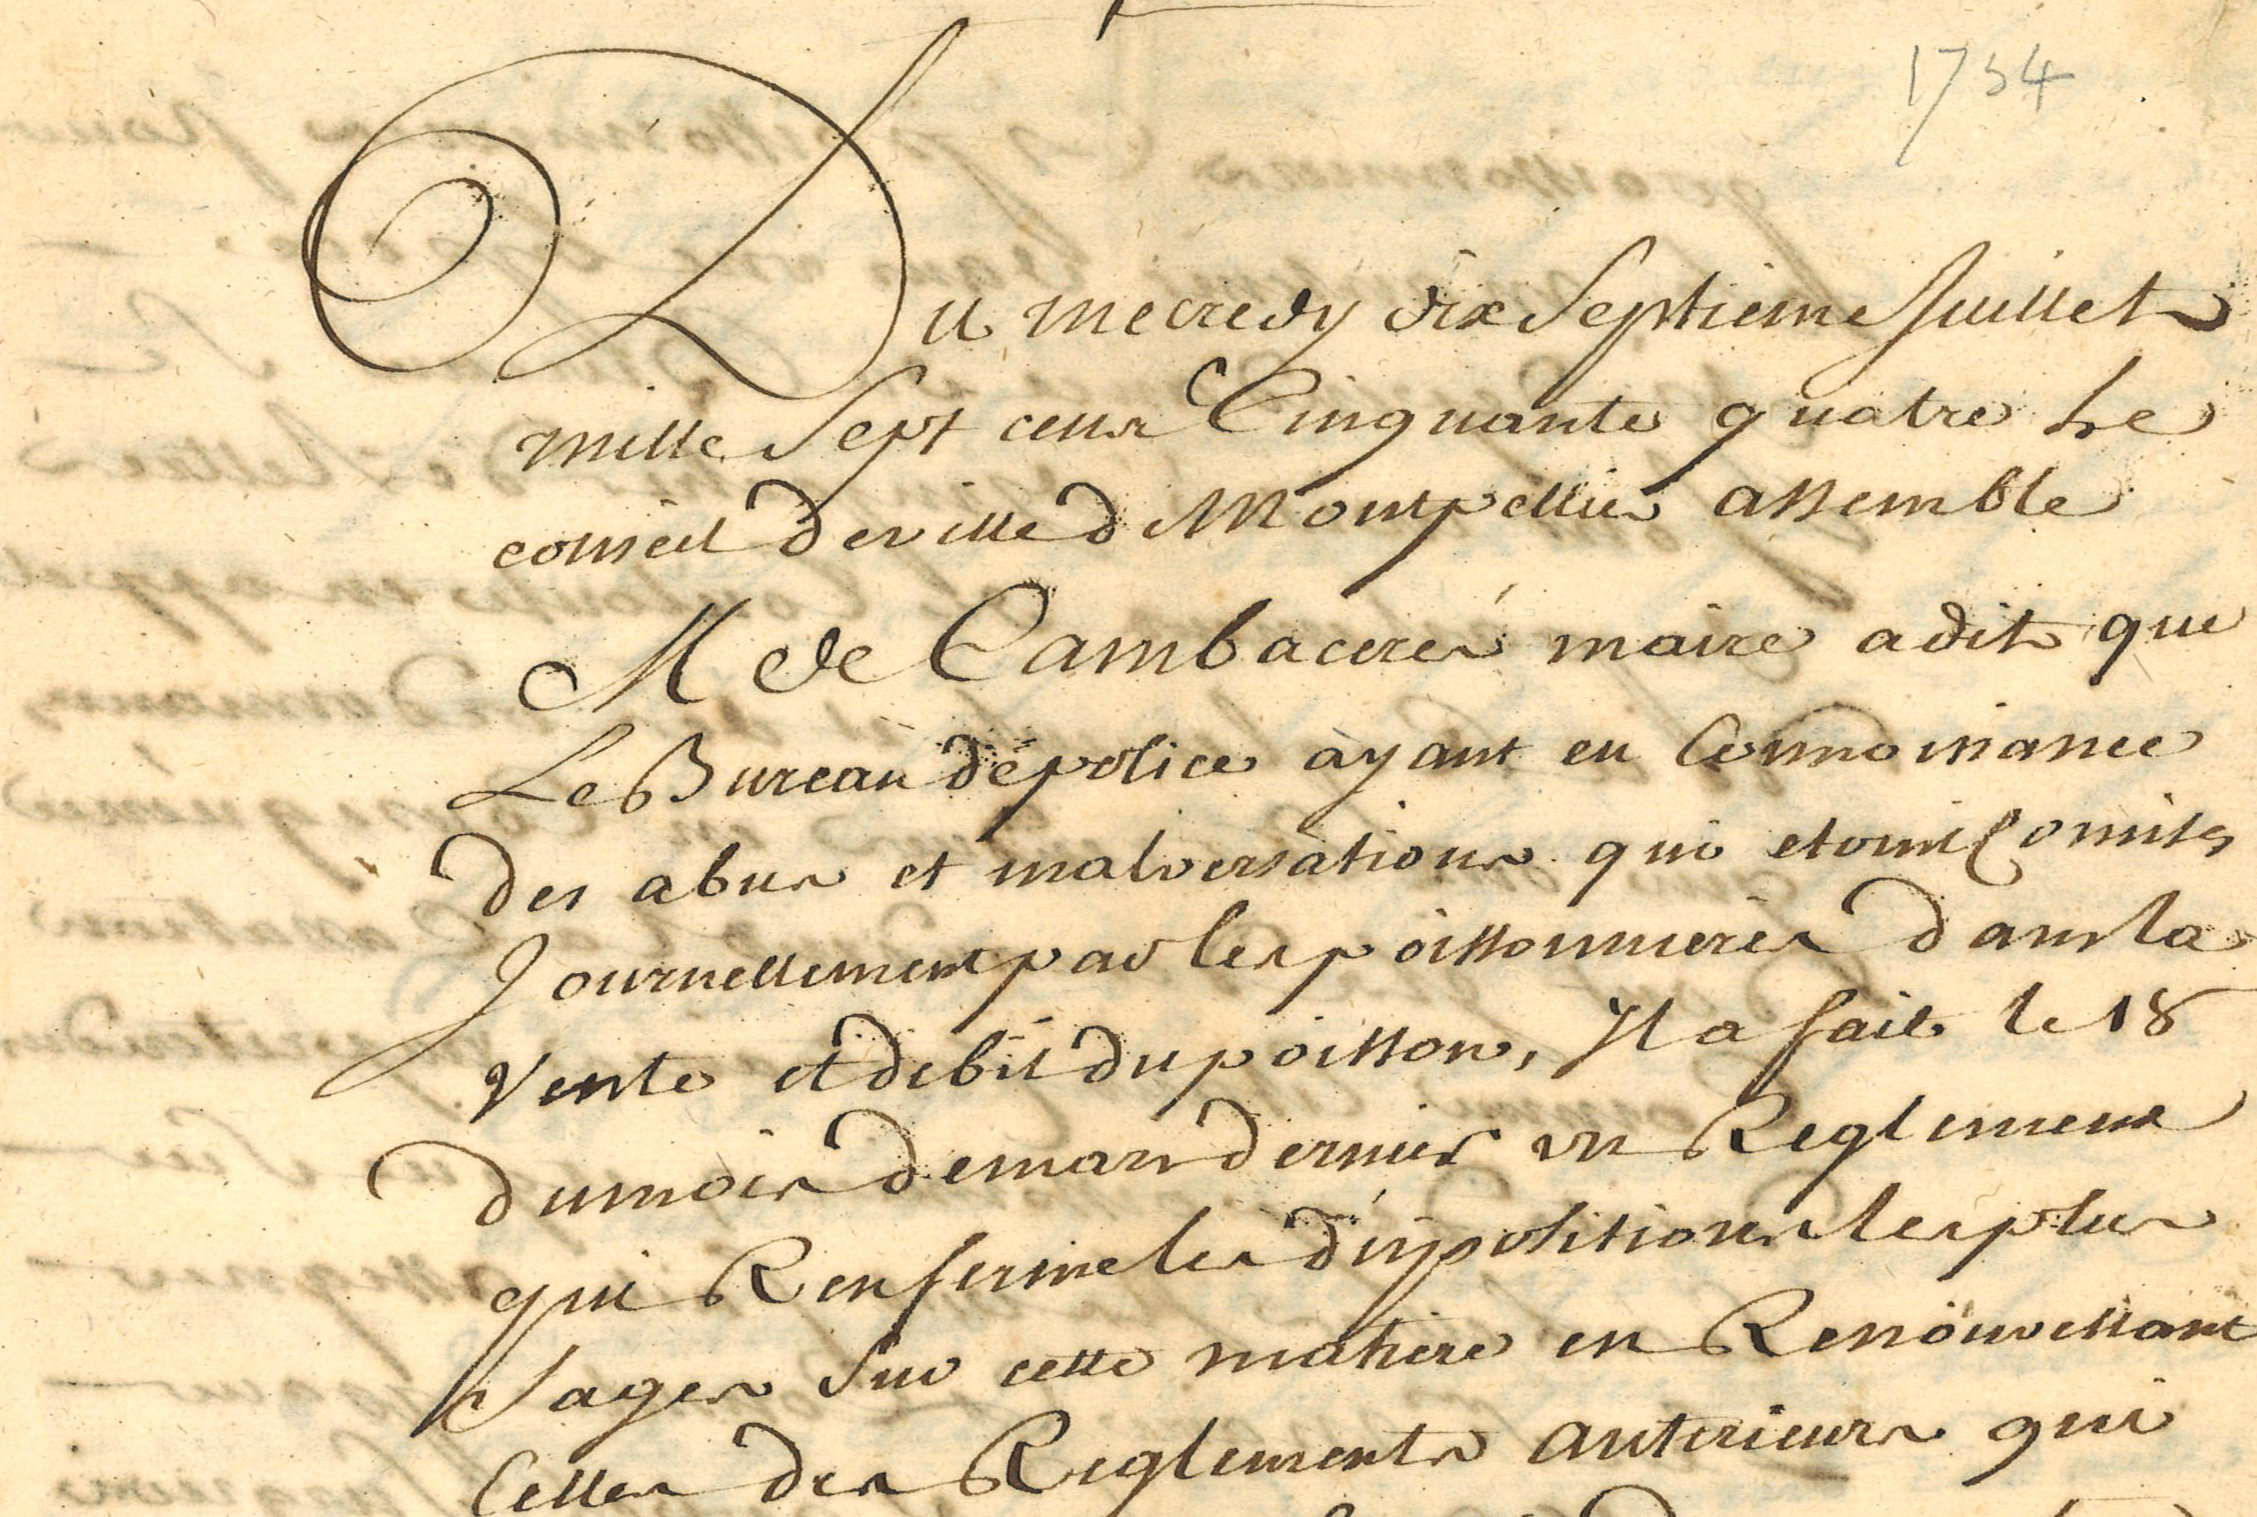 1754
Du mecredy dix Septieme Juillet
mille Sept cens Cinquante quatre Le
conseil de ville de Montpellier assemblé
M de Cambacerés maire a dit que
Le Bureau de police ayant eu Connoissance
des abus et malversations qui etoint Comises
Journellement par les poissonnieres dans la
Vente et debit du poisson, Il a fait le 18
du mois de mars dernier un Reglement
qui Renferme les dispositions les plus
Sages Sur cette matiere en Renouvellant
Celles des Reglements anterieurs qui